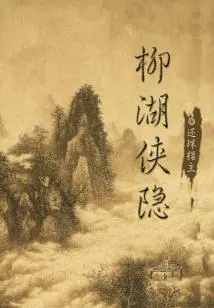 柳湖侠隐
还珠楼主